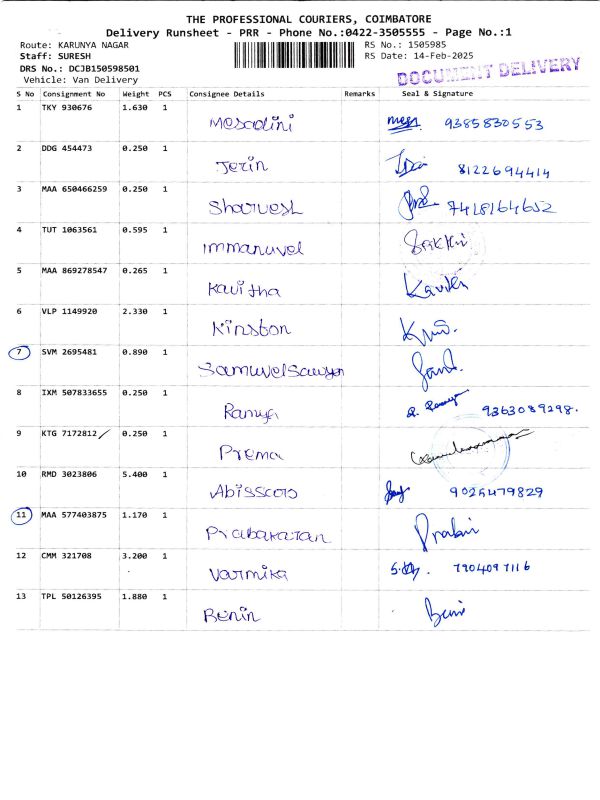 THE PROFESSIONAL COURIERS, COIMBATORE
Delivery Runsheet - PRR - Phone No.:0422-3505555 - Page No.:1
Route: KARUNYA NAGAR RS No.: 1505985
Staff: SURESH RS Date: 14-Feb-2025
DRS No.: DCJB150598501
Vehicle: Van Delivery
DOCUMENT DELIVERY
S No Consignment No Weight PCS Consignee Details Remarks Seal & Signature
1 TKY 930676 1.630 1 Mescolini 9385830553
2 DDG 454473 0.250 1 Jerin 8122694414
3 MAA 650466259 0.250 1 Sharvesh 7418164652
4 TUT 1063561 0.595 1 Immanuvel Sakthi
5 MAA 869278547 0.265 1 Kavitha
6 VLP 1149920 2.330 1 Kinston
7 SVM 2695481 0.890 1
8 IXM 507833655 0.250 1 Ramya 9363089298.
9 KTG 7172812 0.250 1 Prema
10 RMD 3023806 5.400 1 9025479829
11 MAA 577403875 1.170 1 Prabakaran
12 CMM 321708 3.200 1 Varmika 7904097116
13 TPL 50126395 1.880 1 Benin